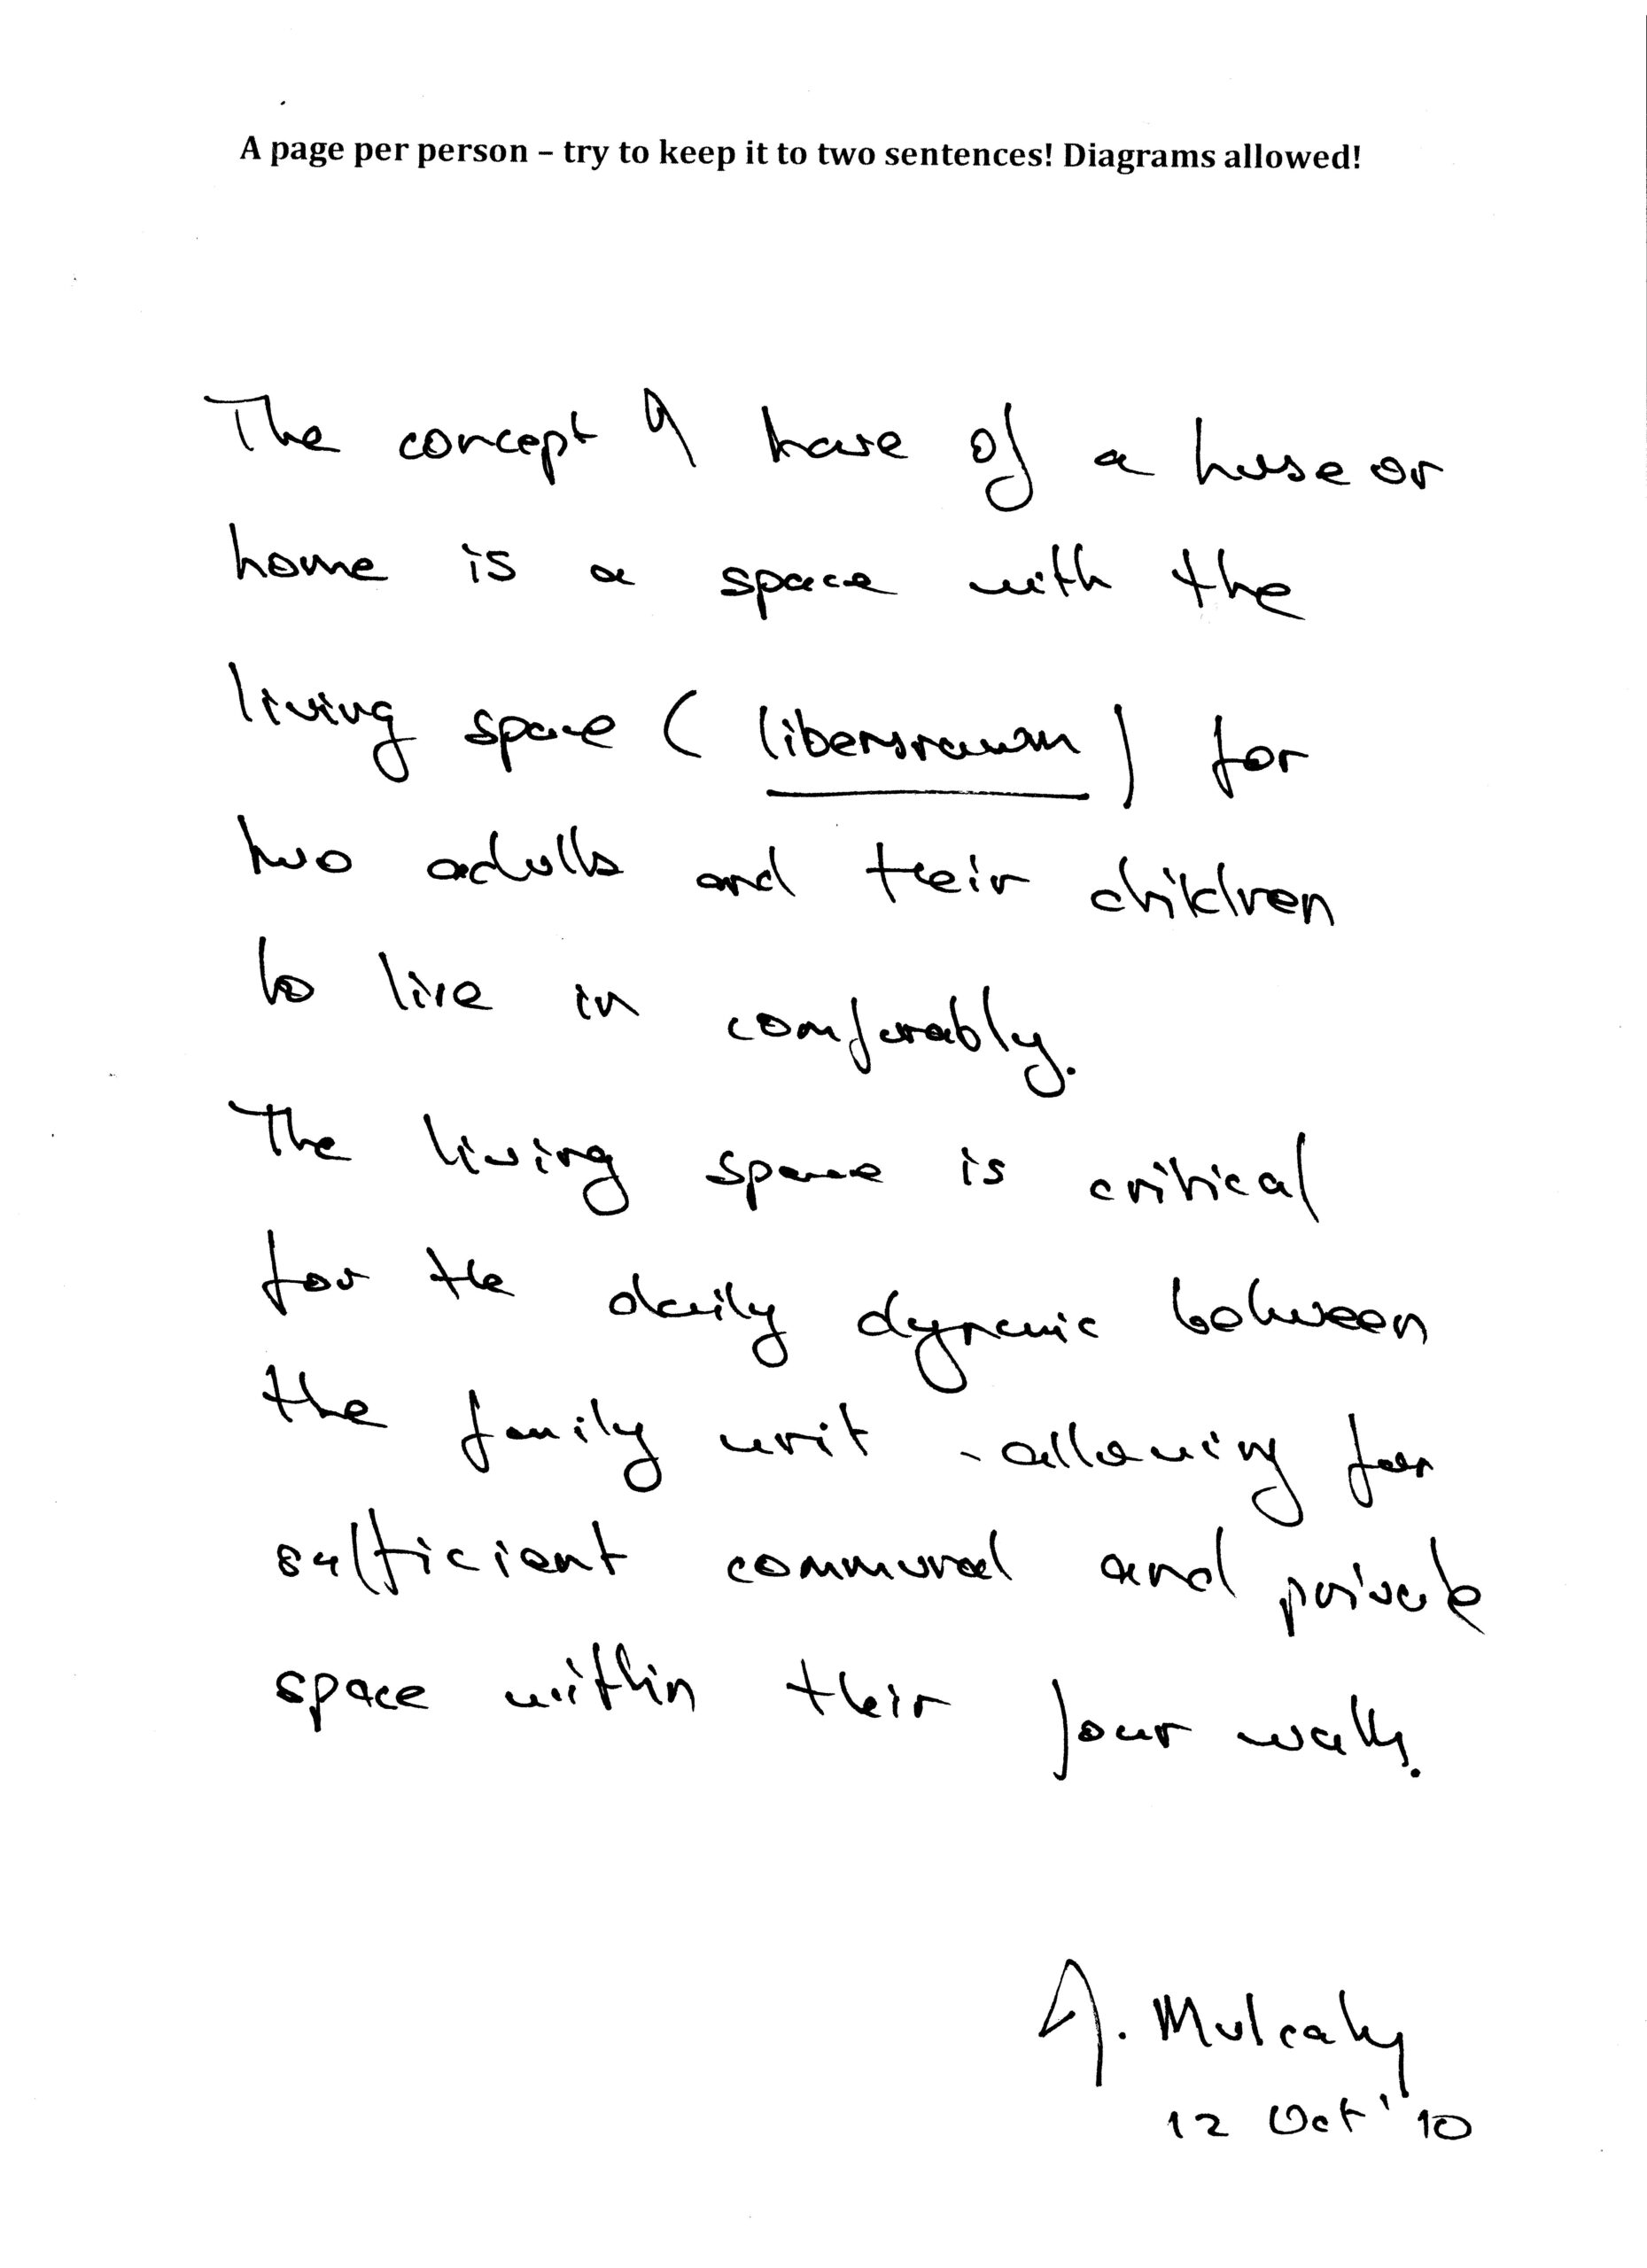 A page per person – try to keep it to two sentences! Diagrams allowed!
The concept I have of a house or
home is a space with the
living space ( libensraum ) for
two adults and their children
to live in comforably.
The living space is critical
for the daily dynamic between
the family unit - allowing for
sufficient communal and private
space within their four walls.
A. Mulcahy
12 Oct '10